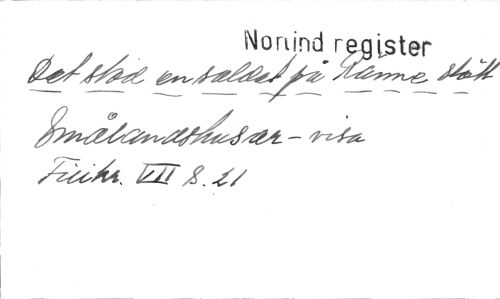 Norlind register
Det stod en soldat på Ränne slätt
Smålandshusar-visa
Fitihr. VII S. 21